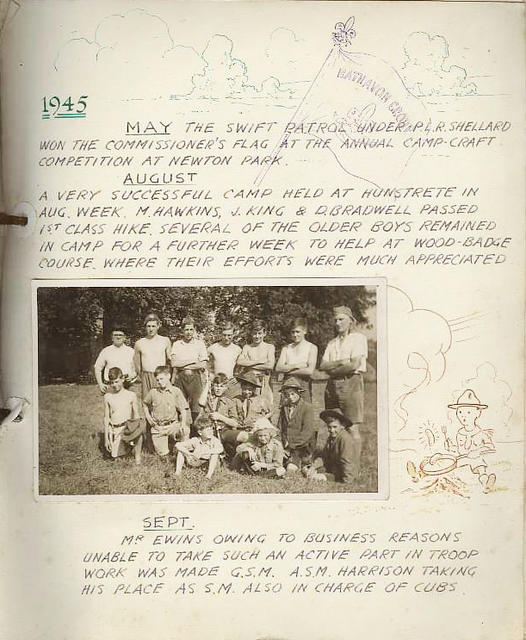 BATHAVON GROUP
1945
MAY THE SWIFT PATROL UNDER P.L.R. SHELLARD
WON THE COMMISSIONER'S FLAG AT THE ANNUAL CAMP-CRAFT
COMPETITION AT NEWTON PARK.
AUGUST
A VERY SUCCESSFUL CAMP HELD AT HUNSTRETE IN
AUG. WEEK. M. HAWKINS, J. KING & D. BRADWELL PASSED
1ST CLASS HIKE. SEVERAL OF THE OLDER BOYS REMAINED
IN CAMP FOR A FURTHER WEEK TO HELP AT WOOD-BADGE
COURSE. WHERE THEIR EFFORTS WERE MUCH APPRECIATED
SEPT.
MR EWINS OWING TO BUSINESS REASONS
UNABLE TO TAKE SUCH AN ACTIVE PART IN TROOP
WORK WAS MADE G.S.M. A.S.M. HARRISON TAKING
HIS PLACE AS S.M. ALSO IN CHARGE OF CUBS.